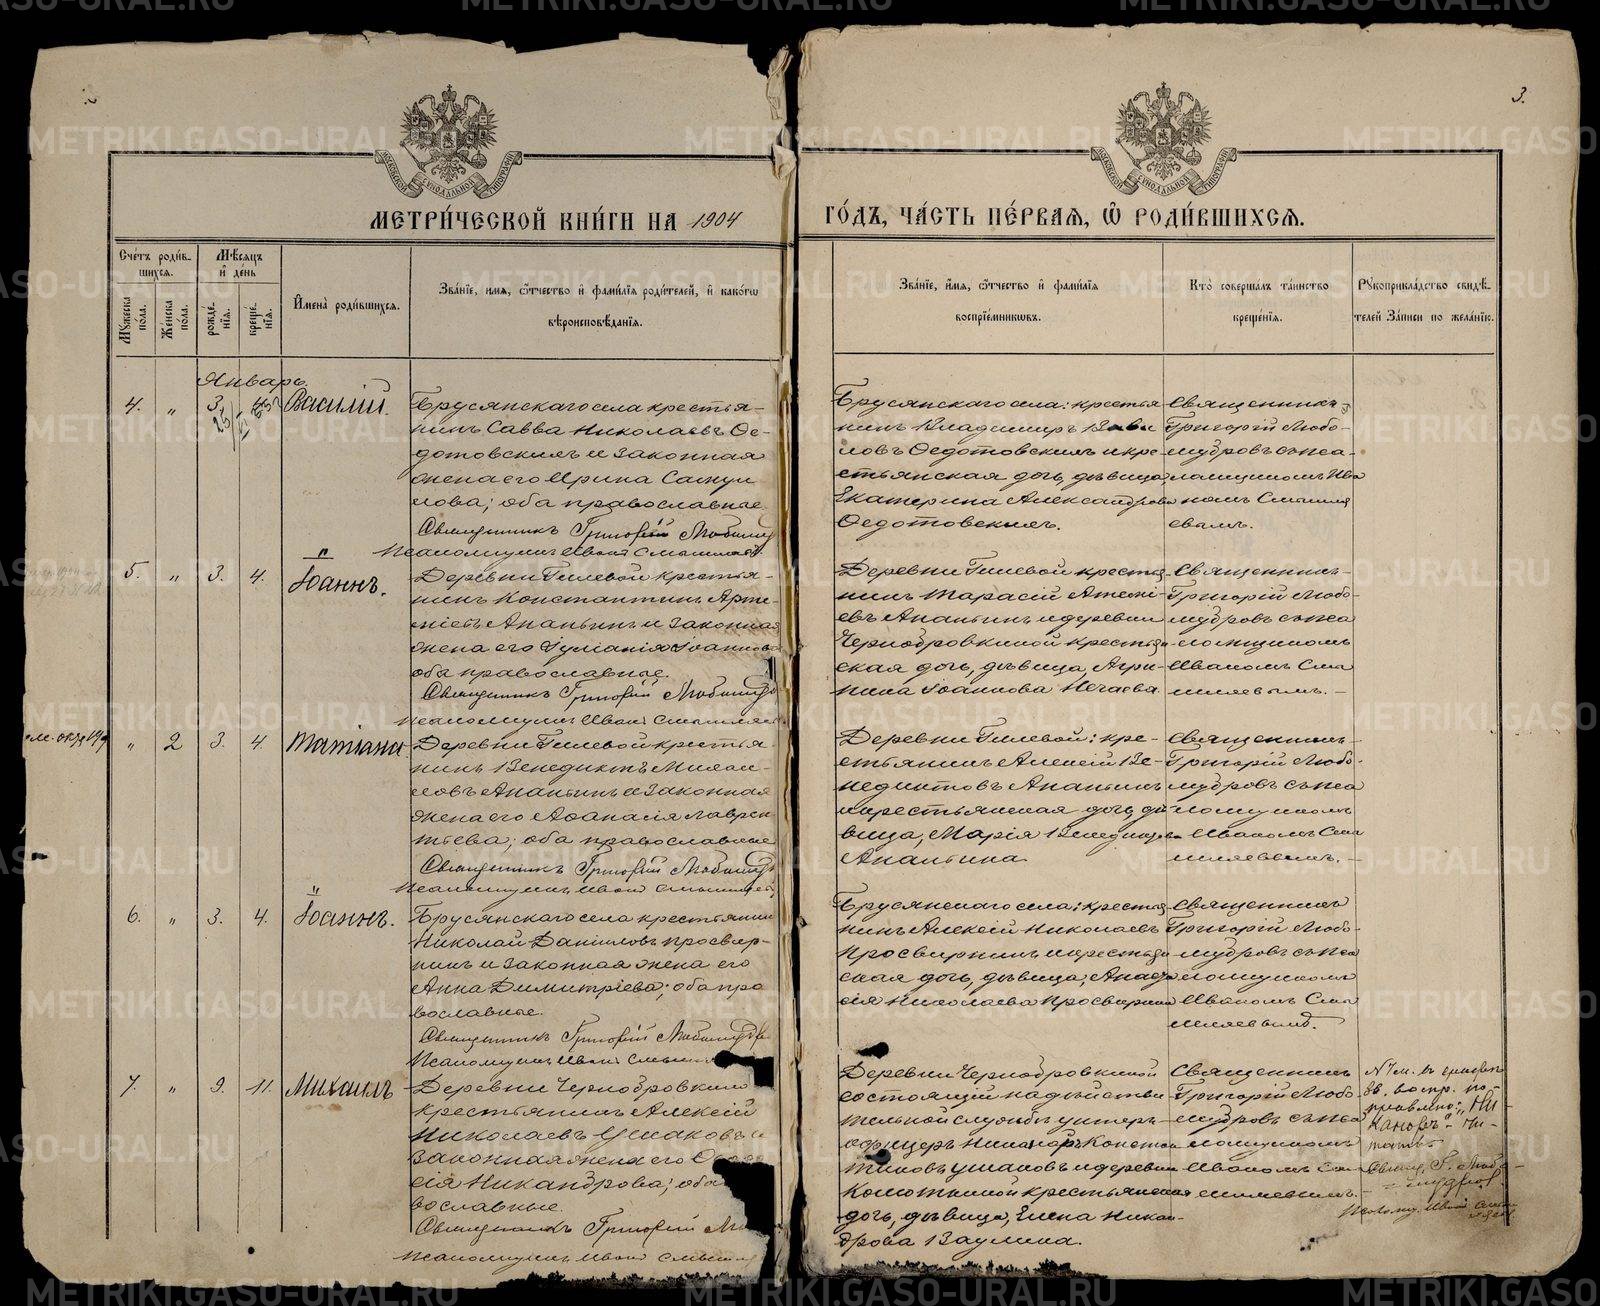 3.
МЕТРИ́ЧЕСКОЙ КНИ́ГИ НА 1904
ГО́ДЪ, ЧА́СТЬ ПЕ́РВАЯ, Ѡ РОДИ́ВШИХСЯ.
Сче́тъ роди́в-
шихся.
Му́жеска по́ла.
Же́нска по́ла.
Мѣ́сяцъ
и де́нь
рожде́нїя.
креще́нїя.
Имена̀ роди́вшихся.
Зва́нїе, и́мя, ѻ҆́тчество и фами́лїя роди́телей, и како́гѡ
вѣроисповѣ́данїя.
Зва́нїе, и́мя, ѻ҆́тчество и фами́лїя
воспрїе́мниковъ.
Кто̀ соверша́лъ та́инство
креще́нїя.
Рꙋкоприкла́дство свидѣ́-
телей за́писи по жела́нїю.
Январь.
4. „ 3. 4. Василій.
Брусянскаго села крестья-
нинъ Савва Николаевъ Ѳе-
дотовскихъ и законная
жена его Ирина Самуи
лова; оба православные.
Священникъ Григорій Любомуд
Псаломщикъ Иванъ Смышляев
Брусянскаго села: крестья
нинъ Владимиръ
ловъ Ѳедотовскихъ и кре-
стьянская дочь, дѣвица,
Екатерина Александрова
Ѳедотовскихъ.
Священникъ
Григорій Любо-
мудровъ съ пса-
ломщикомъ Ива
номъ Смышля
евымъ.
5. „ 3. 4. Іоаннъ.
Деревни Гилевой крестья-
нинъ Константинъ Арте-
міевъ Ананьинъ и законная
жена его Іуліанія Іоаннова
оба православные.
Священникъ Григорій Любомудр
Псаломщикъ Иванъ Смышляев
Деревни Гилевой крестья-
нинъ Тарасій Артемі-
евъ Ананьинъ и деревни
Чернобровкиной крестья-
ская дочь, дѣвица, Агри-
пина Іоаннова Нечаева.
Священникъ
Григорій Любо-
мудровъ съ пса
ломщикомъ
Иваномъ Смы
шляевымъ.
„ 2 3. 4. Татіана
Деревни Гилевой крестья
нинъ Венедиктъ Михаи-
ловъ Ананьинъ и законная
жена его Аѳанасія Лаврен
тьева; оба православные
Священникъ Григорій Любомудр
Псаломщикъ Иванъ Смышляев
Деревни Гилевой: кре-
стьянинъ Алексій Ве-
недиктовъ Ананьинъ
и крестьянская дочь, дѣ-
вица, Марія Венедиктова
Ананьина.
Священникъ
Григорій Любо-
мудровъ съ пса
ломщикомъ
Иваномъ Смы
шляевымъ.
6. „ 3. 4. Іоаннъ.
Брусянскаго села крестьянин
Николай Даніиловъ Просвир-
нинъ и законная жена его
Анна Димитріева; оба пра
вославные.
Священникъ Григорій Любомудр
Псаломщикъ Иванъ Смышля
Брусянскаго села: крестья
нинъ Алексій Николаевъ
Просвирнинъ и крестьян
ская дочь, дѣвица, Анаста
сія Николаева Просвирнина
Священникъ
Григорій Любо-
мудровъ съ пса
ломщикомъ
Иваномъ Смы
шляевымъ.
7. „ 9. 11. Михаилъ
Деревни Чернобровкиной
крестьянинъ Алексій
Николаевъ Ушаковъ и
законная жена его
сія Никандрова; оба
вославные.
Священникъ Григорій Лю
Псаломщикъ Иванъ Смышля
Деревни Чернобровкиной
состоящій на дѣйстви
тельной службѣ унтеръ-
офицеръ Констан
тиновъ Ушаковъ и деревни
крестьянская
дочь, дѣвица, Елена Никан-
дрова Ваулина.
Священникъ
Григорій Любо-
мудровъ съ пса
ломщикомъ
Иваномъ См
шляевымъ.
METRIKI.GASO-URAL.RU